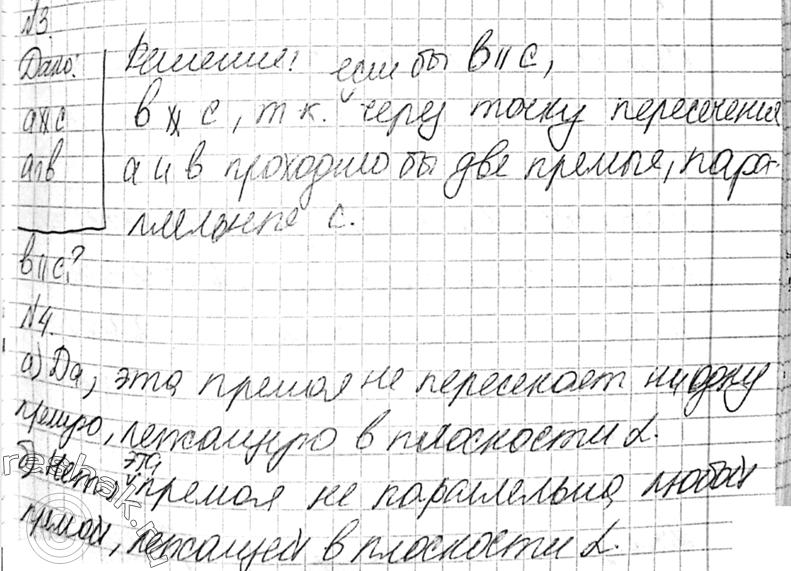 №3
Дано: Решение: если бы в || с,
а∦с в ∦ с, т к. через точку пересечения
а∩в а и в проходило бы две прямые, пара-
ллельные с.
в||с?
№4.
а) Да, эта прямая не пересекает ни одну
прямую, лежащую в плоскости α.
б) Нет, эта прямая не параллельна любой
прямой, лежащей в плоскости α.
reshak.ru